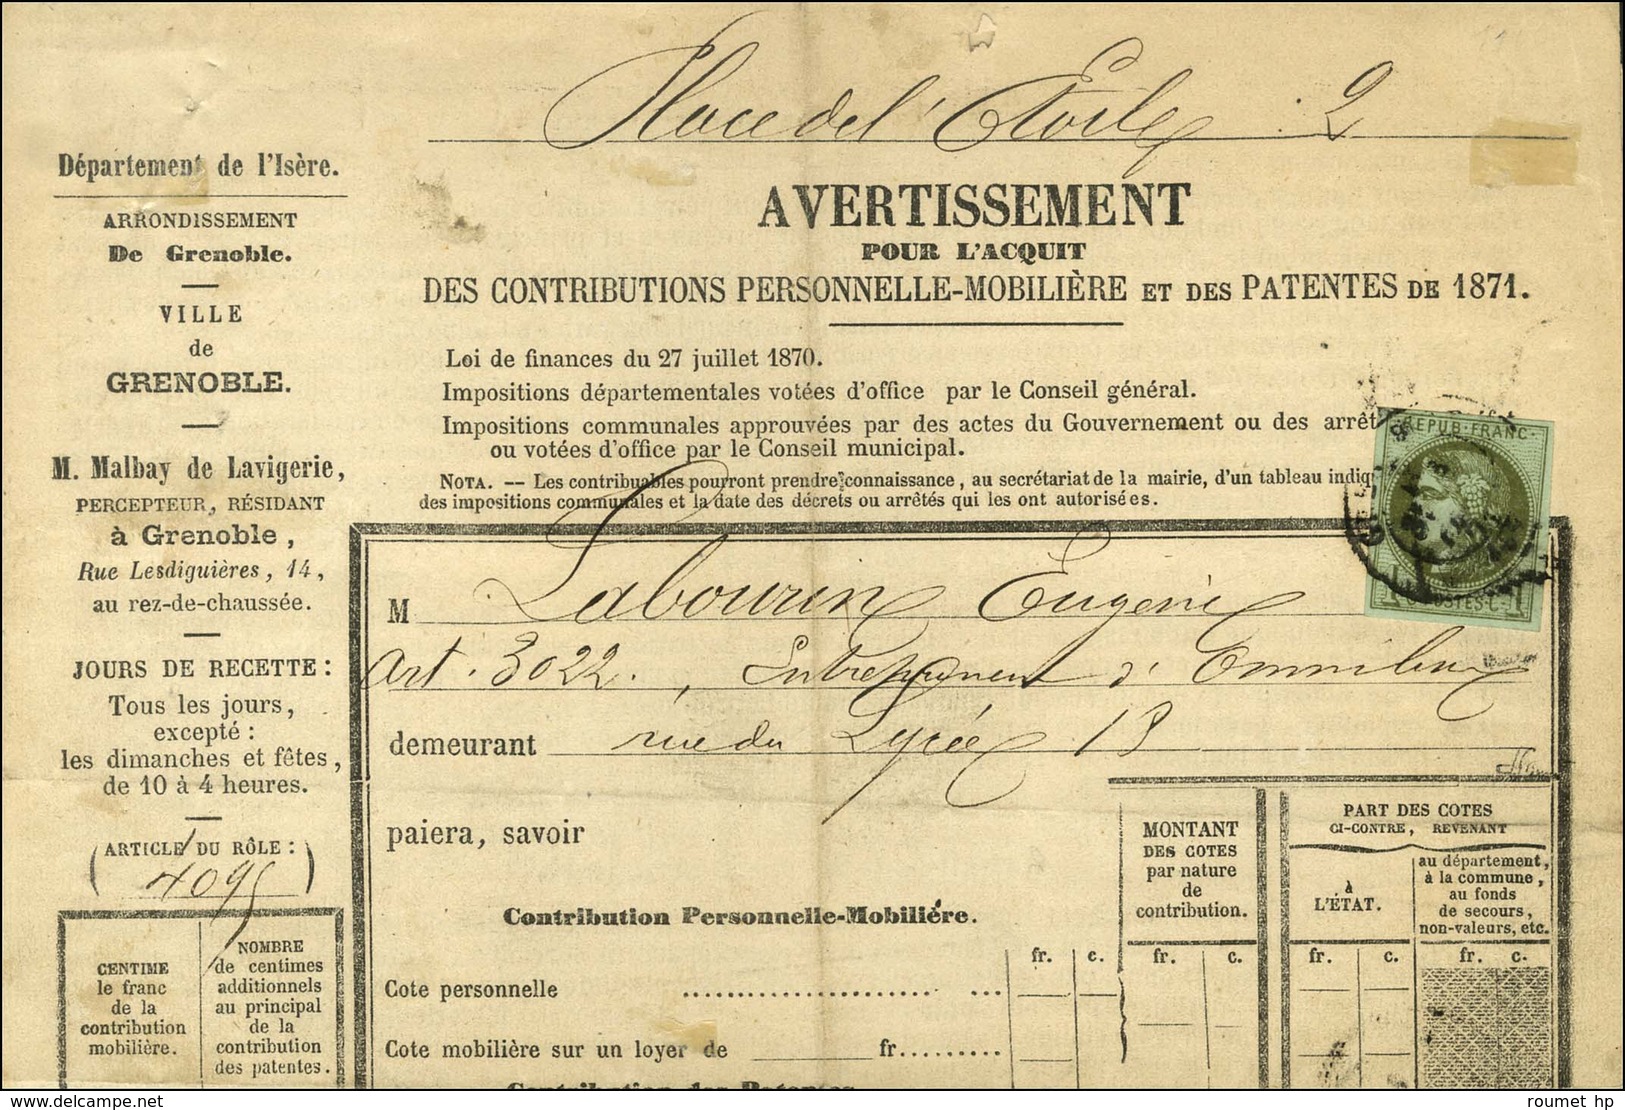 Place de l'Etoile 2
Département de l'Isère.
ARRONDISSEMENT
De Grenoble.
VILLE
de
GRENOBLE.
M. Malbay de Lavigerie,
PERCEPTEUR, RÉSIDANT
à Grenoble,
Rue Lesdiguières, 14,
au rez-de-chaussée.
JOURS DE RECETTE :
Tous les jours,
excepté :
les dimanches et fêtes,
de 10 à 4 heures.
ARTICLE DU RÔLE :
4095
CENTIME
le franc
de la
contribution
mobilière.
NOMBRE
de centimes
additionnels
au principal
de la
contribution
des patentes.
AVERTISSEMENT
POUR L'ACQUIT
DES CONTRIBUTIONS PERSONNELLE-MOBILIÈRE ET DES PATENTES DE 1871.
Loi de finances du 27 juillet 1870.
Impositions départementales votées d'office par le Conseil général.
Impositions communales approuvées par des actes du Gouvernement ou des arrêt
ou votées d'office par le Conseil municipal.
NOTA. — Les contribuables pourront prendre connaissance, au secrétariat de la mairie, d'un tableau indiq
des impositions communales et la date des décrets ou arrêtés qui les ont autorisées.
REPUB·FRANC·
1 POSTES·C· 1
M Labourin Eugénie
Art. 3022. , Entrepreneur d'Omnibus
demeurant rue du Lycée 13
paiera, savoir
Contribution Personnelle-Mobilière.
MONTANT
DES COTES
par nature
de
contribution.
PART DES COTES
CI-CONTRE, REVENANT
à
L'ÉTAT.
au département,
à la commune,
au fonds
de secours,
non-valeurs, etc.
fr. c. fr. c. fr. c. fr. c.
Cote personnelle
Cote mobilière sur un loyer de fr.
Contribution des Patentes
delcampe.net
roumet hp